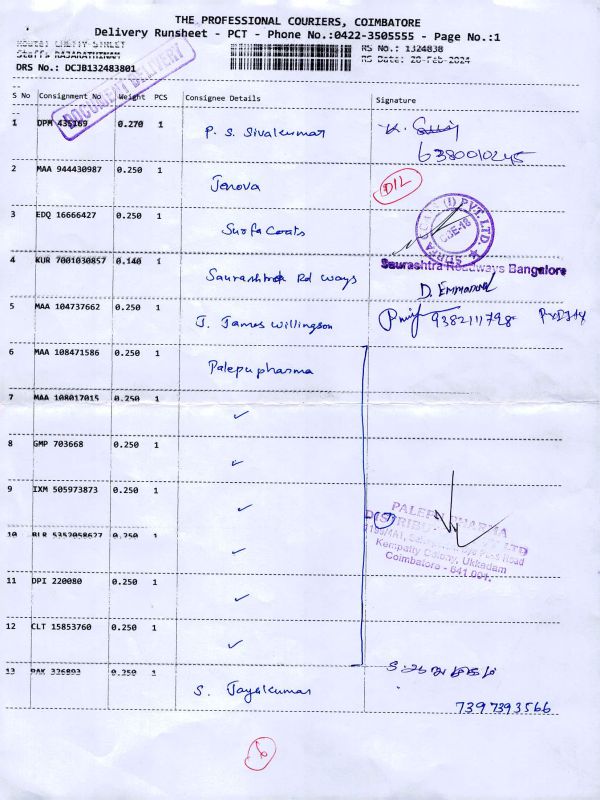 THE PROFESSIONAL COURIERS, COIMBATORE
Delivery Runsheet - PCT - Phone No.:0422-3505555 - Page No.:1
Route: CHETTY STREET
Staff: RAJARATHINAM
RS No.: 1324838
DRS No.: DCJB132483801
RS Date: 28-Feb-2024
DOCUMENT DELIVERY
S No Consignment No Weight PCS Consignee Details Signature
1 DPM 435169 0.270 1 P. S. Sivakumar K.
6380010245
2 MAA 944430987 0.250 1 Jenova D12
3 EDQ 16666427 0.250 1 Surfa Coats
SURFA COATS (I) PVT. LTD. CBE-18
4 KUR 7001030857 0.140 1 Saurashtra Rd ways Saurashtra Roadways Bangalore
D. Emmanuel
5 MAA 104737662 0.250 1 J. James Willingson 9382111798
6 MAA 108471586 0.250 1 Palepu pharma
7 MAA 108017015 0.250 1 ✓
8 GMP 703668 0.250 1 ✓
9 IXM 505973873 0.250 1 ✓
PALEPU PHARMA
DISTRIBU LTD
7
10 BLR 5352058627 0.250 1 ✓
Road
Kempatty Colony, Ukkadam
Coimbatore - 641 001.
11 DPI 220080 0.250 1 ✓
12 CLT 15853760 0.250 1 ✓
13 PAK 326893 0.250 1 S. Jayakumar
7397393566